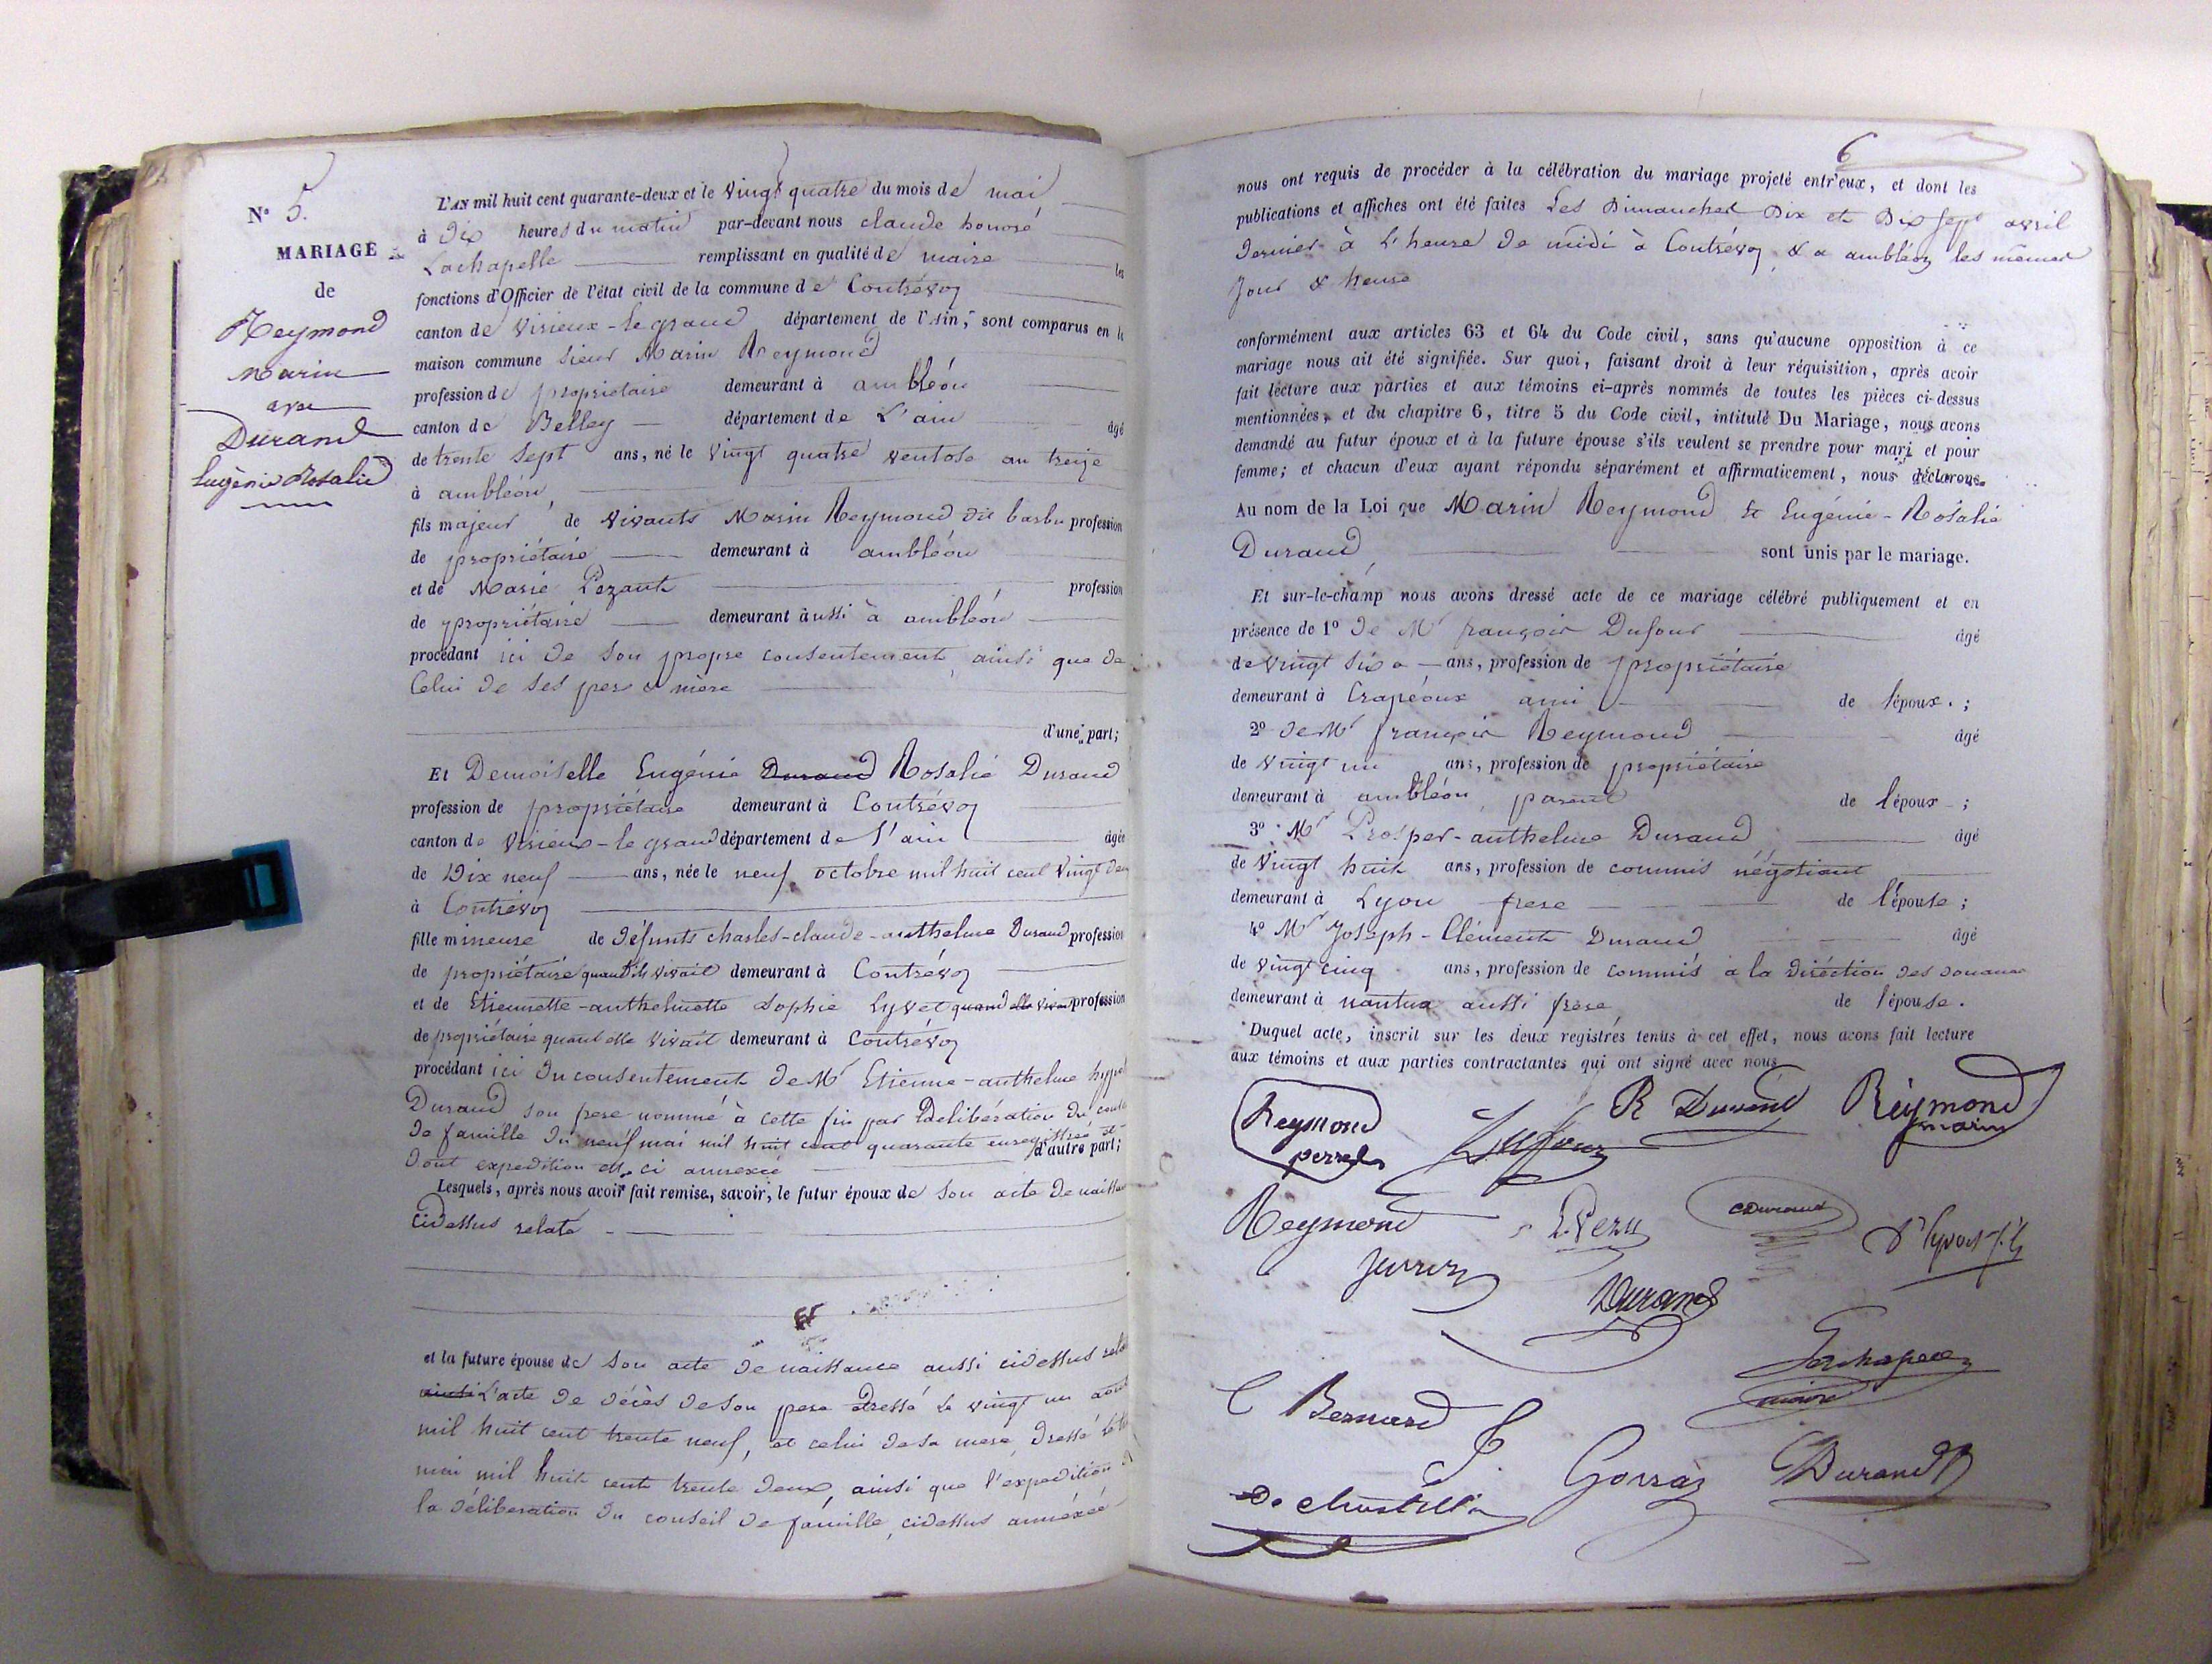 N° 5.
MARIAGE
de
Reymond
Marin
avec
Durand
Eugénie Rosalie
L'AN mil huit cent quarante-deux et le vingt quatre du mois de mai
à dix heures du matin par-devant nous claude honoré
Lachapelle remplissant en qualité de maire les
fonctions d'Officier de l'état civil de la commune de Contrévoz
canton de Virieux-le grand département de l'Ain, sont comparus en la
maison commune sieur Marin Reymond
profession de propriétaire demeurant à ambléon
canton de Belley département de L'ain âgé
de trente sept ans, né le vingt quatre ventose an treize
à ambléon
fils majeur de vivants Marin Reymond dit barbu profession
de propriétaire demeurant à ambléon
et de Marie Pezant profession
de propriétaire demeurant aussi à ambléon
procédant ici de son propre consentement, ainsi que de
Celui de ses pere & mère
d'une part;
Et Demoiselle Eugénie Durand Rosalie Durand
profession de propriétaire demeurant à Contrévoz
canton de Virieux-le grand département de l'ain âgée
de Dix neuf ans, née le neuf octobre mil huit cent vingt deux
à Contrévoz
fille mineure de défunts charles-claude-anthelme Durand profession
de propriétaire quand il vivait demeurant à Contrévoz
et de Etiennette-anthelmette Sophie Lyvet quand elle vivait profession
de propriétaire quand elle vivait demeurant à Contrévoz
procédant ici du consentement de Mr Etienne-anthelme
Durand son frere nommé à cette fin par Délibération du conseil
de famille du neuf mai mil huit cent quarante enregistrée et
dont expedition est ci annexée d'autre part;
Lesquels, après nous avoir fait remise, savoir, le futur époux de son acte de naissance
cidessus relaté
et la future épouse de son acte de naissance aussi cidessus relaté
ainsi L'acte de décès de son pere dressé le vingt un août
mil huit cent trente neuf, et celui de sa mere, dressé le
mai mil huit cent trente deux, ainsi que l'expedition de
la déliberation du conseil de famille, cidessus annéxée
6
nous ont requis de procéder à la célébration du mariage projeté entr'eux, et dont les
publications et affiches ont été faites Les Dimanches Dix et Dix sept avril
dernier à L'heure de midi à Contrévoz, & a ambléon les mêmes
Jour & heure
conformément aux articles 63 et 64 du Code civil, sans qu'aucune opposition à ce
mariage nous ait été signifiée. Sur quoi, faisant droit à leur réquisition, après avoir
fait lecture aux parties et aux témoins ci-après nommés de toutes les pièces ci-dessus
mentionnées, et du chapitre 6, titre 5 du Code civil, intitulé Du Mariage, nous avons
demandé au futur époux et à la future épouse s'ils veulent se prendre pour mari et pour
femme; et chacun d'eux ayant répondu séparément et affirmativement, nous déclarons
Au nom de la Loi que Marin Reymond & Eugénie-Rosalie
Durand sont unis par le mariage.
Et sur-le-champ nous avons dressé acte de ce mariage célébré publiquement et en
présence de 1° de Mr françois Dufour âgé
de vingt six ans, profession de propriétaire
demeurant à Crapéoux ami de l'époux.;
2° de Mr françois Reymond âgé
de vingt un ans, profession de propriétaire
demeurant à ambléon, parent de l'époux;
3° Mr Prosper-anthelme Durand âgé
de vingt huit ans, profession de commis négotiant
demeurant à Lyon frere de l'épouse;
4° Mr Joseph-Clément Durand âgé
de vingt cinq ans, profession de commis à la direction des douanes
demeurant à nantua aussi frère de l'épouse.
Duquel acte, inscrit sur les deux registres tenus à cet effet, nous avons fait lecture
aux témoins et aux parties contractantes qui ont signé avec nous
Reymond Dufour R Durand Reymond
marin
Reymond CDurand
Durand
Lachapelle
maire
C Bernard
Gorraz CDurand